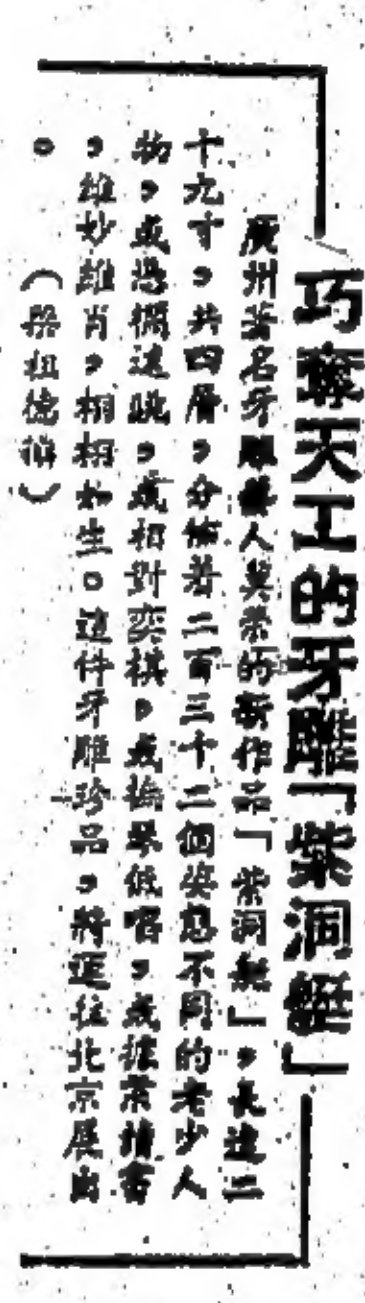 巧奪天工的牙雕「紫洞艇」
廣州著名牙雕藝人吳榮的新作品「紫洞艇」，長達二
十九寸，共四層，分佈着二百三十二個姿態不同的老少人
物，或憑欄遠眺，或相對奕棋，或撫琴低唱，或
，維妙維肖，栩栩如生。這件牙雕珍品，將運往北京展出
。（梁祖德 ）